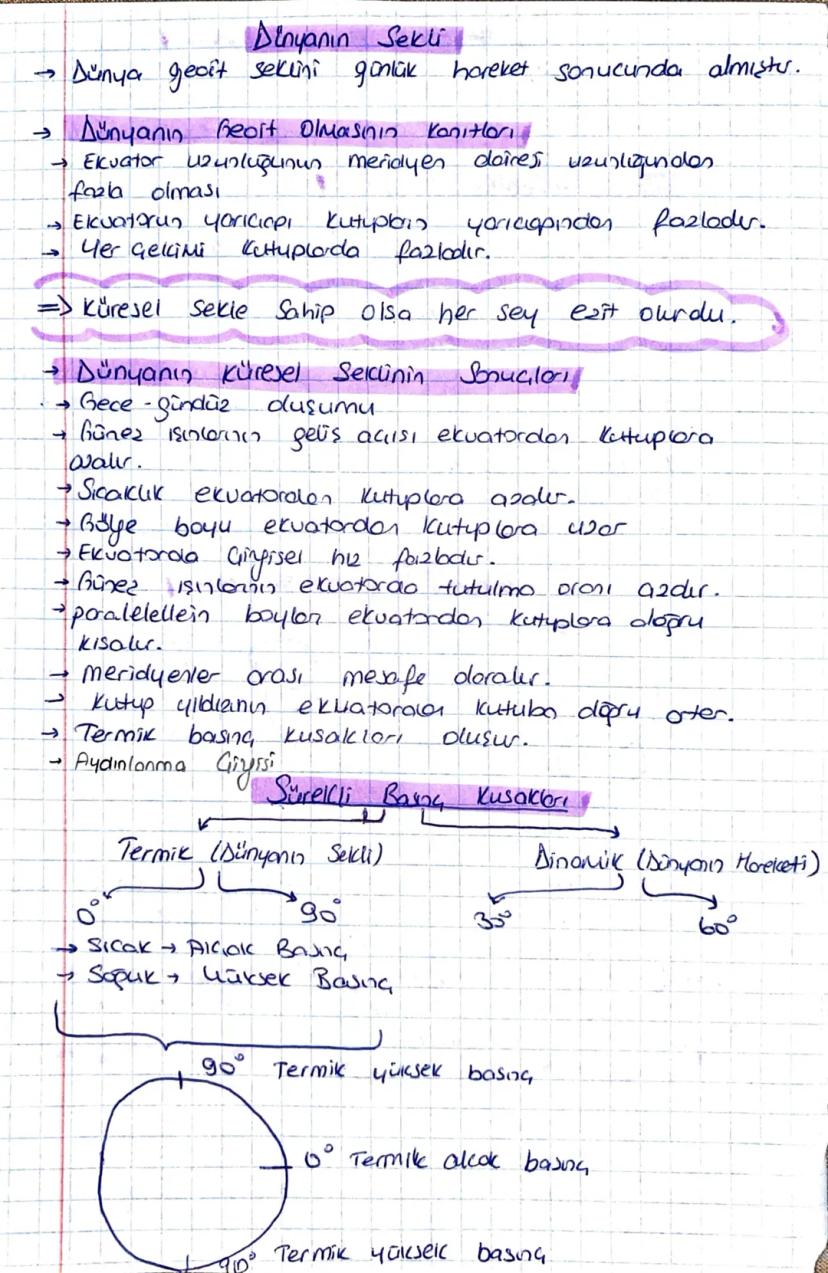 Dünyanın Sekli
→ Dünya geoit seklini günlük hareket sonucunda almıştır.
→ Dünyanın Geoit Olmasının Kanıtları
→ Ekvator uzunluğunun meridyen dairesi uzunluğundan
fazla olması
→ Ekvatorun yarıçapı kutupların yarıçapından fazladır.
→ Yer Çekimi kutuplarda fazladır.
=> Küresel sekle sahip olsa her sey esit olurdu.
→ Dünyanın Küresel Seklinin Sonuçları
→ Gece-gündüz oluşumu
→ Günes ışınlarının geliş açısı ekvatordan kutuplara
azalır.
→ Sıcaklık ekvatordan kutuplara azalır.
→ Gölge boyu ekvatordan kutuplara uzar
→ Ekvatorda Çizgisel hız fazladır.
→ Günes ışınlarının ekvatorda tutulma oranı azdır.
→ paralelellein boyları ekvatordan kutuplara doğru
kısalır.
→ meridyenler arası mesafe daralır.
→ Kutup yıldızının ekvatordan kutuba doğru artar.
→ Termik basınç kusakları oluşur.
→ Aydınlanma Çizgisi
Sürekli Basınç Kusakları
Termik (Dünyanın Sekli) Dinamik (Dünyanın Hareketi)
0° 90° 30° 60°
→ Sıcak → Alçak Basınç
→ Soğuk → Yüksek Basınç
90° Termik yüksek basınç
0° Termik alcak basınç
90° Termik yüksek basınç